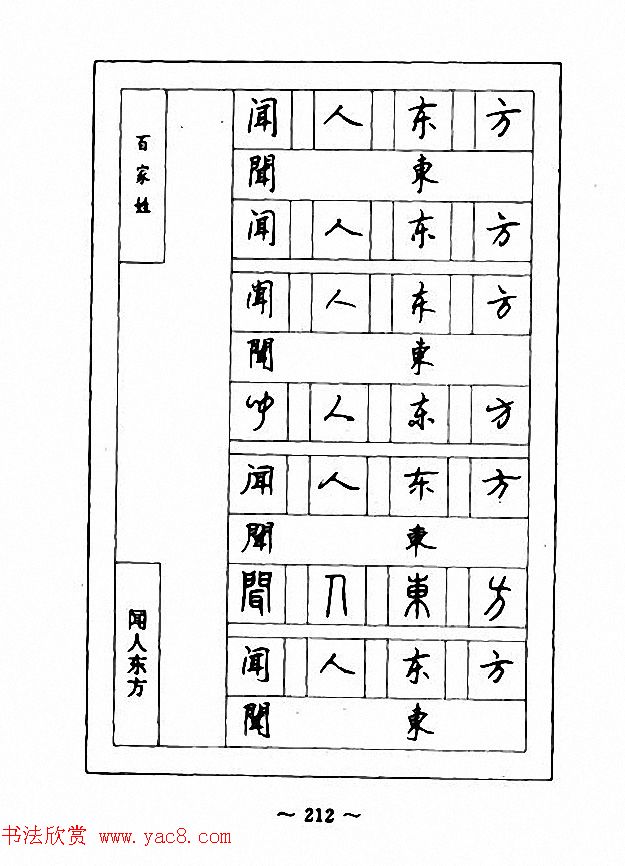 百家姓
闻人东方
聞東
闻人东方
闻人东方
聞東
闻人东方
闻人东方
聞東
聞人東方
闻人东方
聞東
闻人东方
～ 212 ～
书法欣赏 www.yac8.com